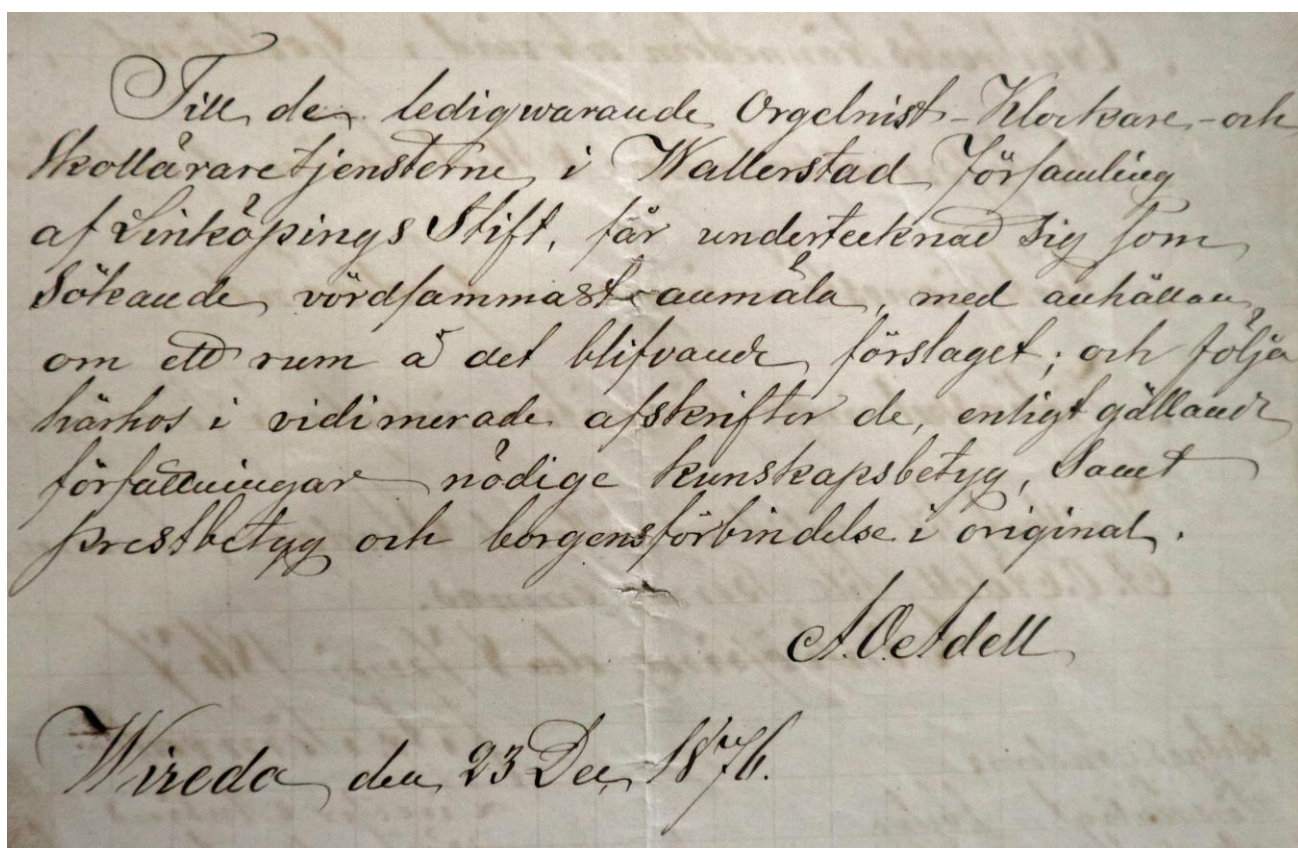 Till de ledigwarande Orgelnist-Klockare-och
Skolläraretjensterne i Wallerstad Församling
af Linköpings Stift, får undertecknad sig som
Sökande vördsammast anmäla, med anhållan
om ett rum å det blifvande förslaget; och följa
härhos i vidimerade afskrifter de, enligt gällande
författningar nödige kunskapsbetyg, Samt
prestbetyg och borgensförbindelse i original.
A.O. Adell
Wireda den 23 Dec 1876.